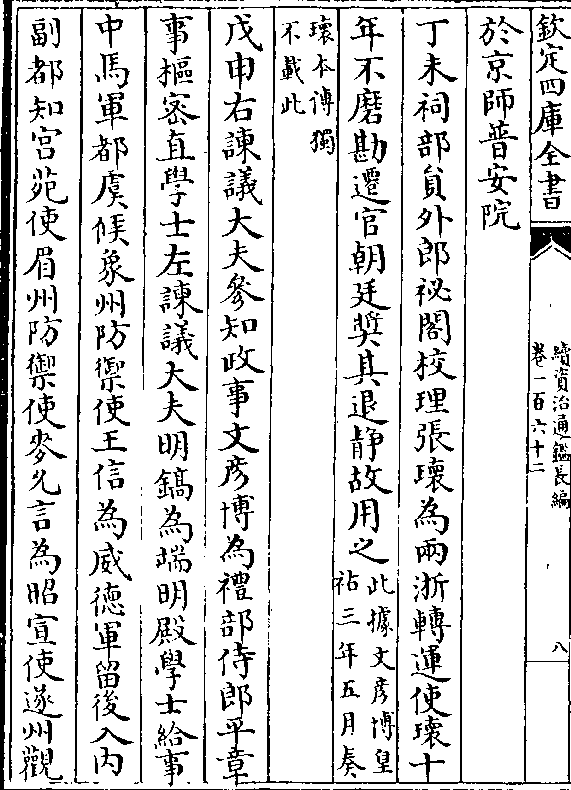 欽定四庫全書
續資治通鑑長編
卷一百六十二
八
於京師普安院
丁未祠部貟外郎祕閣校理張瓌為兩浙轉運使瓌十
年不磨勘遷官朝廷奬其退静故用之此據文彦博皇
祐三年五月奏
瓌本傳獨
不載此
戊申右諫議大夫參知政事文彦博為禮部侍郎平章
事樞密直學士左諫議大夫明鎬為端明殿學士給事
中馬軍都虞候象州防禦使王信為威徳軍留後入内
副都知宫苑使眉州防禦使麥允言為昭宣使遂州觀